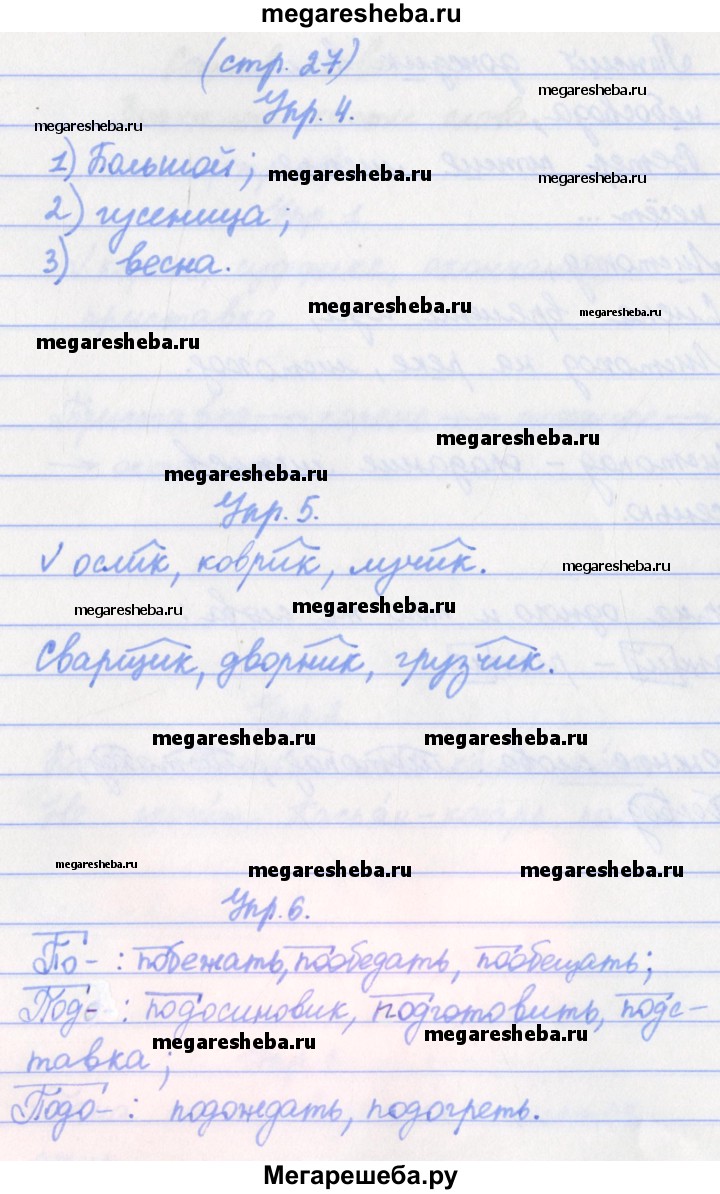 megaresheba.ru
(стр. 27)
megaresheba.ru
Упр. 4.
megaresheba.ru
1) Большой;
megaresheba.ru
megaresheba.ru
2) гусеница;
3) весна.
megaresheba.ru
megaresheba.ru
megaresheba.ru
megaresheba.ru
megaresheba.ru
Упр. 5.
√ ослик, коврик, лучик.
megaresheba.ru
megaresheba.ru
megaresheba.ru
Сварщик, дворник, грузчик.
megaresheba.ru
megaresheba.ru
megaresheba.ru
megaresheba.ru
megaresheba.ru
Упр. 6.
По- : побежать, пообедать, пообещать;
Под- : подосиновик, подготовить, подс-
megaresheba.ru
megaresheba.ru
тавка;
Подо- : подождать, подогреть.
Мегарешеба.ру